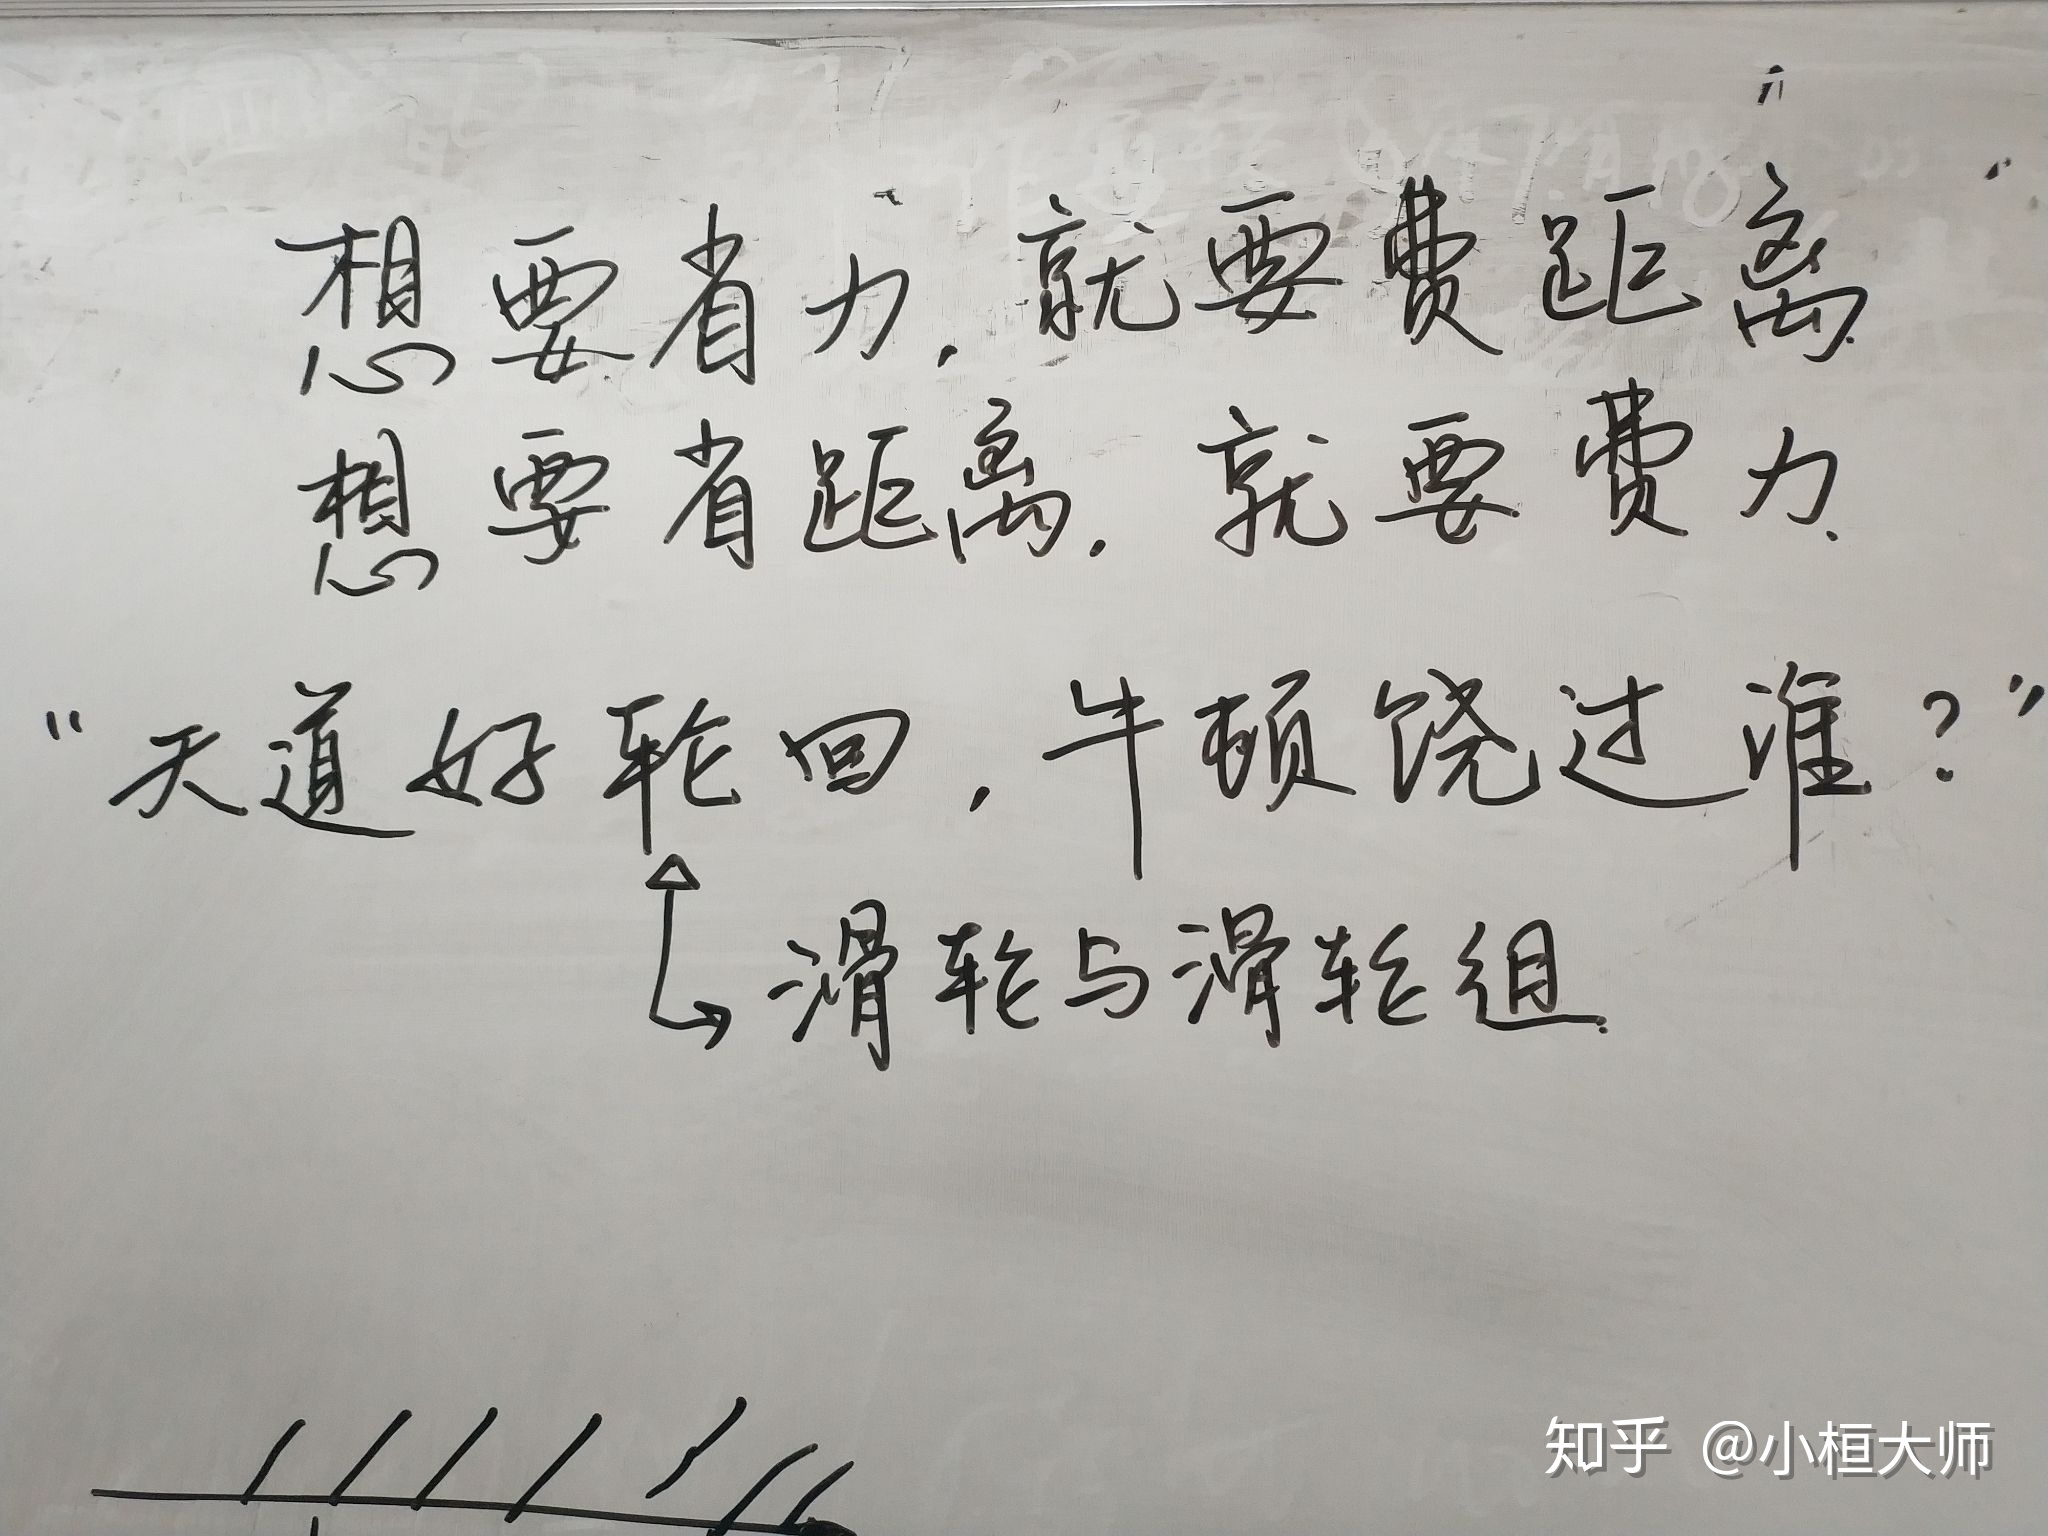 想要省力,就要费距离.
想要省距离,就要费力.
“天道好轮回,牛顿饶过谁?”
滑轮与滑轮组.
知乎 @小桓大师